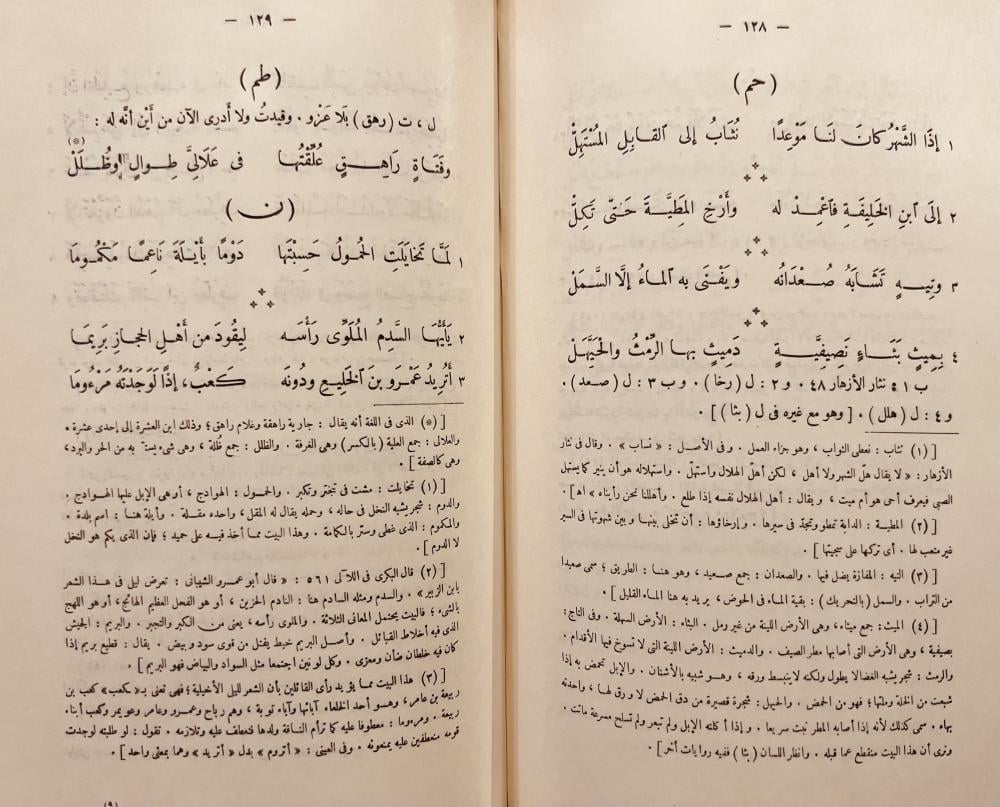 — ١٢٨ —
(حم)
١ إذَا الشَّهْرُ كانَ لنَا مَوْعِدًا نُثَابُ إلى القابِلِ المُسْتَهِلّْ
٢ إلَى ابنِ الخَلِيفَةِ فاعْمِدْ له وأَرْخِ المَطِيَّةَ حَتَّى تَكِلّْ
٣ وتِيهٍ تَشَابَهُ صُعْدَانُه ويَفْنَى به الماءُ إلَّا السَّمَلْ
٤ بِمِيثٍ بَثَاءٍ نَصِيفِيَّةٍ دَمِيثٍ بها الرِّمْثُ والحَيَّهَلْ
ب ١ : نثار الأزهار ٤٨ . و ٢ : ل (رخا) . و ب ٣ : ل (صعد) .
و ٤ : ل (هلل) . [ وهو مع غيره فى ل (بثا) ] .
[ (١) نثاب : نعطى الثواب ، وهو جزاء العمل . وفى الأصل : « نساب » . وقال فى نثار
الأزهار : « لا يقال هلّ الشهر ولا أهل ، لكن أهلّ الهلال واستهلّ . واستهلاله هو أن ينير كما يستهل
الصبى فيعرف أحى هو أم ميت ، ويقال : أهل الهلال نفسه إذا طلع . وأهللنا نحن رأيناه » اه ] .
[ (٢) المطية : الدابة تمطو وتجدّ فى سيرها . وإرخاؤها : أن تخلى بينها وبين شهوتها فى السير
غير متعب لها . أى تركها على سجيتها ] .
[ (٣) التيه : المفازة يضل فيها . والصعدان : جمع صعيد ، وهو هنا : الطريق ؛ سمى صعيدا
من التراب . والسمل (بالتحريك) : بقية الماء فى الحوض ، يريد به هنا الماء القليل ] .
[ (٤) الميث : جمع ميثاء ، وهى الأرض اللينة من غير رمل . البثاء : الأرض السهلة . وفى التاج :
بصيفية ، وهى الأرض التى أصابها مطر الصيف . والدميث : الأرض اللينة التى لا تسوخ فيها الأقدام .
والرمث : شجر يشبه الغضا لا يطول ولكنه لا ينبسط ورقه ، وهو شبيه بالأشنان . والإبل تحمض به إذا
شبعت من الخلة وملتها ؛ فهو من الحمض . والحيهل : شجرة قصيرة من دق الحمض لا ورق لها ، واحدته
بهاء . سمى كذلك لأنه إذا أصابه المطر نبت سريعا . وإذا أكلته الإبل ولم تبعر ولم تسلح مسرعة ماتت .
ونرى أن هذا البيت منقطع عما قبله . وانظر اللسان (بثا) ففيه روايات أخر ] .
— ١٢٩ —
(طم)
ل ، ت (رهق) بَلَا عَزْو . وقيدتُ ولا أدرى الآن من أَيْن أنَّه له :
وفَتَاةٍ رَاهِقٍ عُلِّقْتُهَا فى عَلَالِىَّ طِوالٍ وظُلَلْ (*)
(ن)
١ لَمَّا تَخايَلَتِ الحُمولُ حَسِبْتَها دَوْمًا بأَيْلَةَ ناعِمًا مَكْمُوما
٢ يَأَيُّها السَّدِمُ المُلَوِّى رَأْسَه لِيَقُودَ من أهْلِ الحجازِ بَرِيمَا
٣ أَتُرِيدُ عَمْرَو بنَ الخَلِيعِ ودُونَه كَعْبٌ ، إذًا لَوَجَدْتَهُ مَرْءُومَا
[ (*) الذى فى اللغة أنه يقال : جارية راهقة وغلام راهق ؛ وذلك ابن العشرة إلى إحدى عشرة .
والعلالى : جمع العلية (بالكسر) وهى الغرفة . والظلل : جمع ظُلة ، وهى شىء يستتر به من الحر والبرد ،
وهى كالصفة ] .
[ (١) تخايلت : مشت فى تبختر وتكبر . والحمول : الهوادج ، أو هى الإبل عليها الهوادج .
والدوم : شجر يشبه النخل فى حاله ، وحمله يقال له المقل ، واحده مقلة . وأيلة هنا : اسم بلدة .
والمكموم : الذى غطى وستر بالكمامة . وهذا البيت مما أخذ فيه على حميد ؛ فإن الذى يكم هو النخل
لا الدوم ] .
[ (٢) قال البكرى فى اللآلى ٥٦١ : « قال أبو عمرو الشيبانى : تعرض ليلى فى هذا الشعر
بابن الزبير » . والسدم ومثله السادم هنا : النادم الحزين ، أو هو الفحل العظيم الهائج ، أو هو اللهج
بالشىء ؛ فالبيت يحتمل المعانى الثلاثة . والملوى رأسه ، يعنى من الكبر والتجبر . والبريم : الجيش
الذى فيه أخلاط القبائل . وأصل البريم خيط يفتل من قوى سود وبيض . يقال : قطيع بريم إذا
كان فيه خلطان ضأن ومعزى . وكل لونين اجتمعا مثل السواد والبياض فهو البريم ] .
[ (٣) هذا البيت مما يؤيد رأى القائلين بأن الشعر لليلى الأخيلية ؛ فهى تعنى بـ « كعب » كعب بن
ربيعة بن عامر ، وهو أحد الخلعاء آبائها وآباء توبة ، وهم رباح وعمرو وعامر وعويمر وكعب أبناء
ربيعة . ومرءوما : معطوفا عليه كما ترأم الناقة ولدها فتعطف عليه وتلازمه . تقول : لو طلبته لوجدت
قومه منعطفين عليه يمنعونه . وفى العينى : « أتروم » بدل « أتريد » وهما بمعنى واحد ] .
(٩)